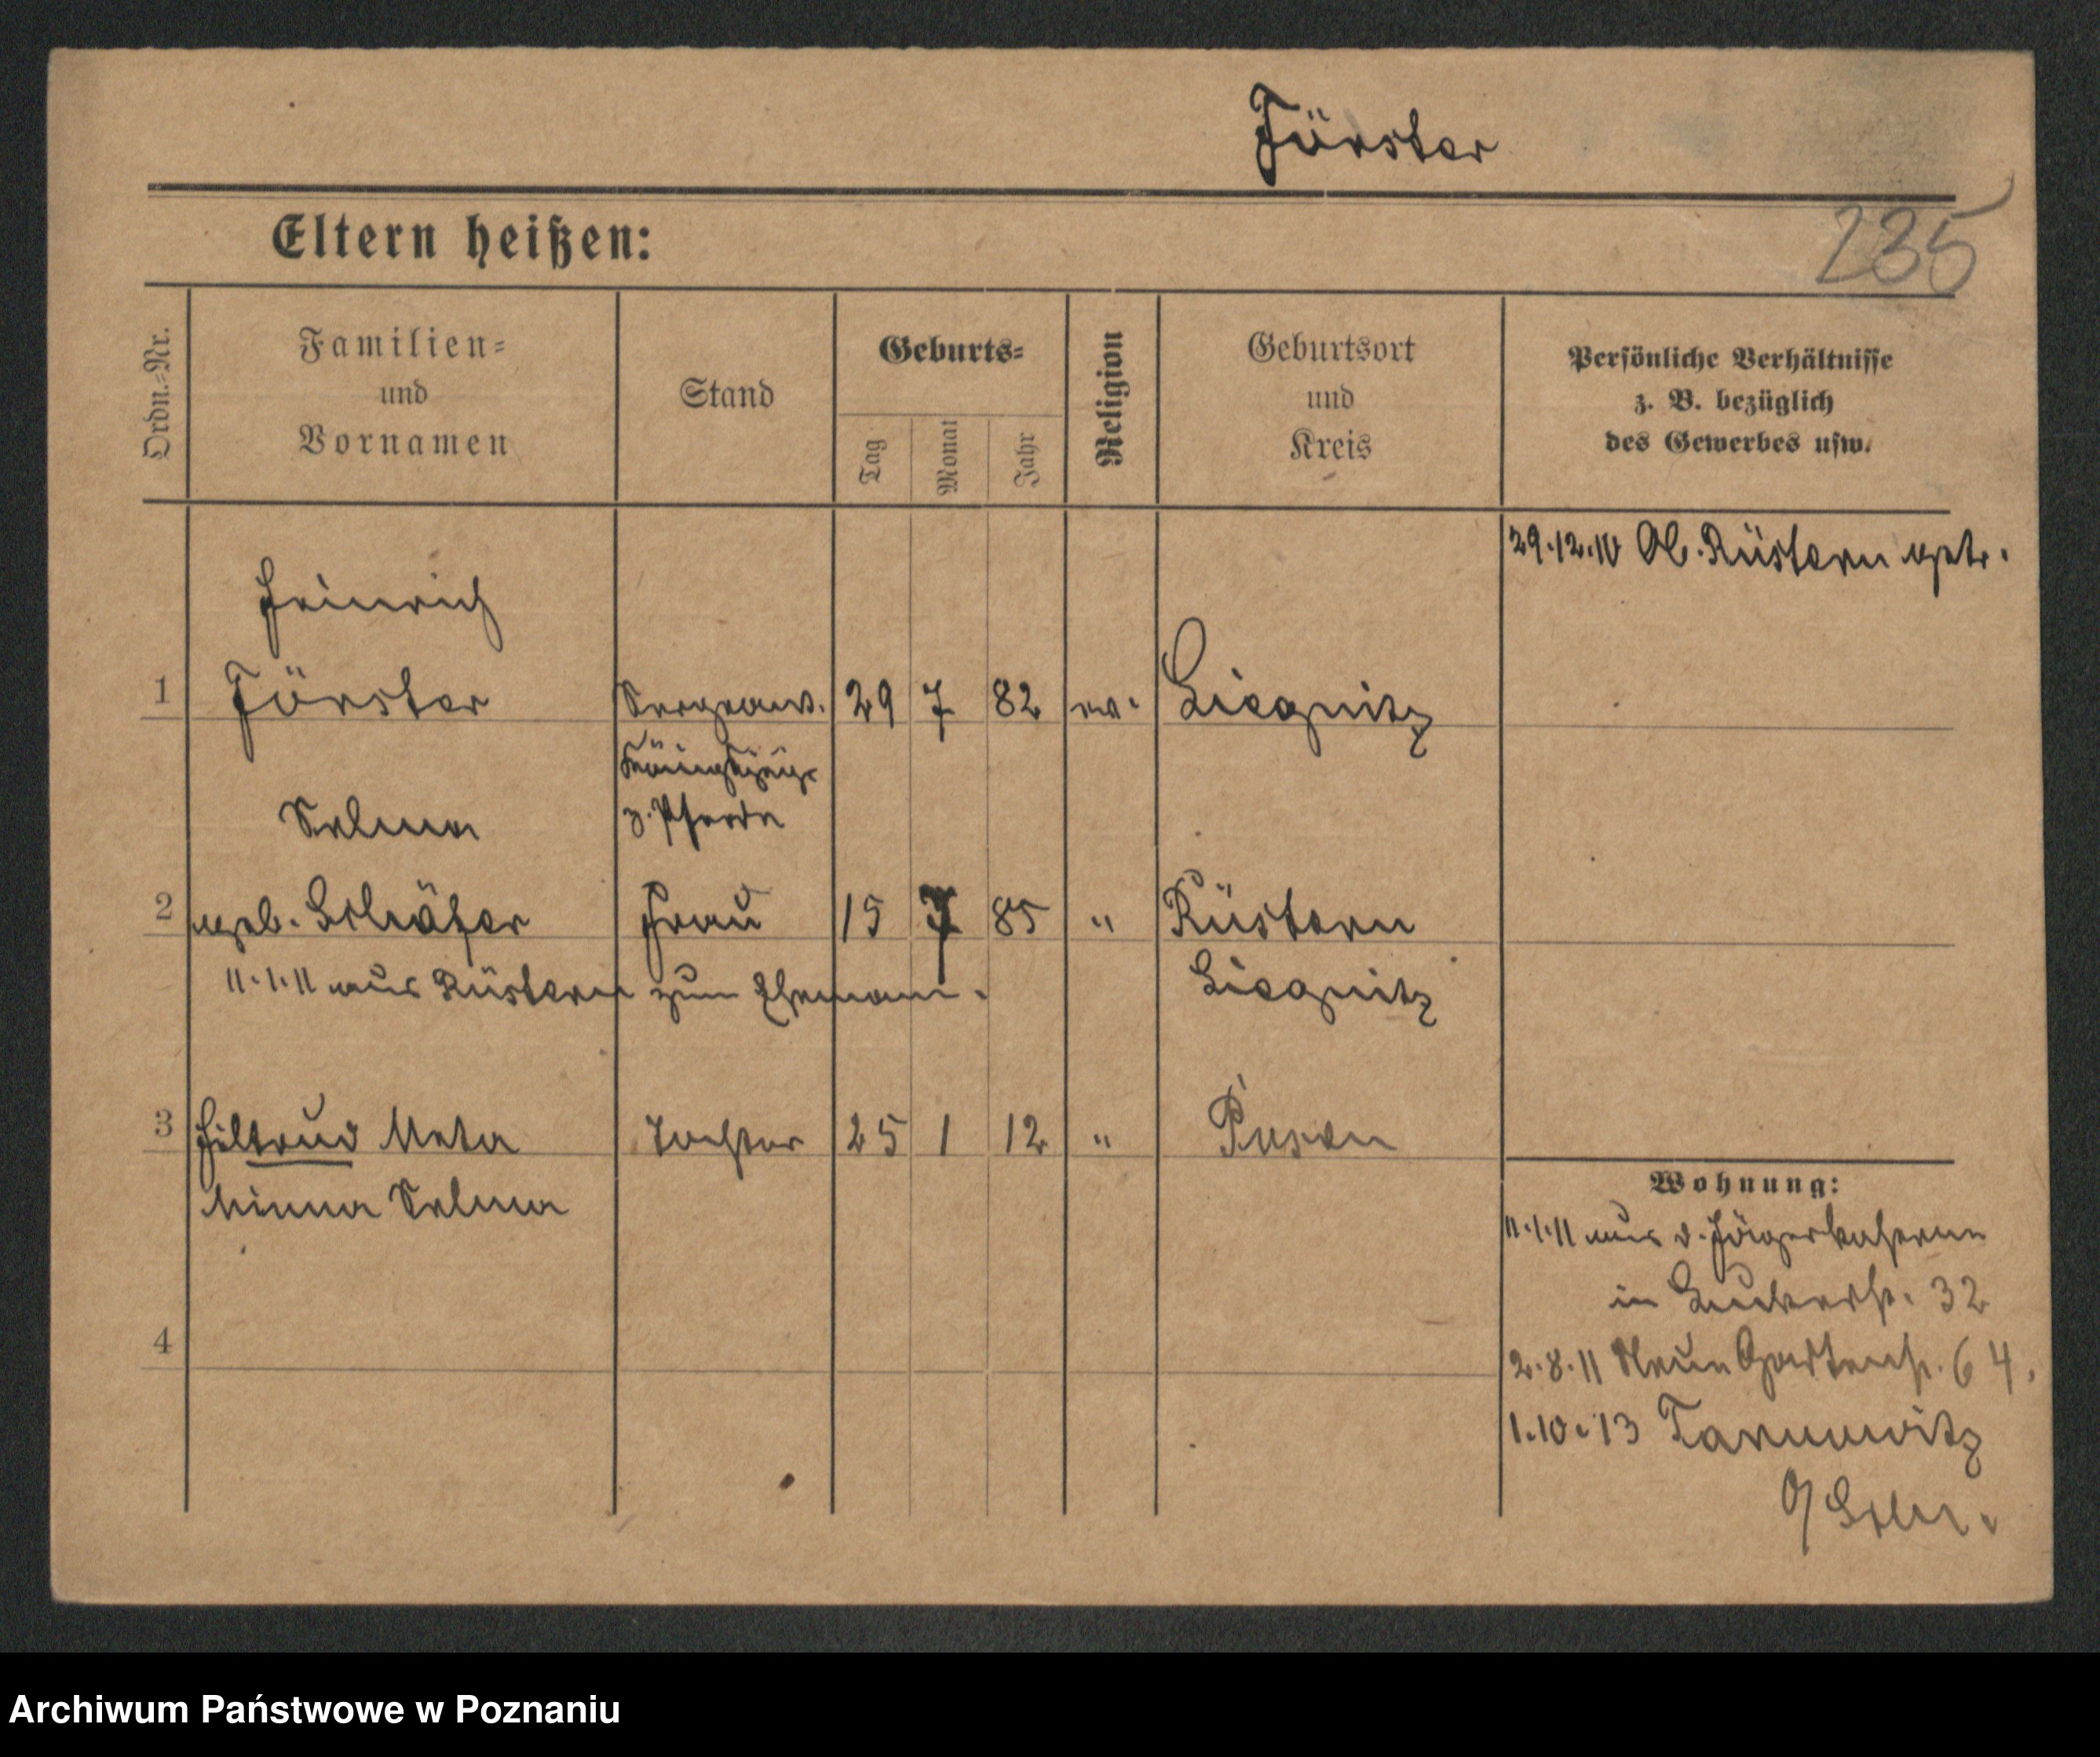 Förster
235
Eltern heißen:
Ordn.-Nr.
Familien-
und
Vornamen
Stand
Geburts-
Tag
Monat
Jahr
Religion
Geburtsort
und
Kreis
Persönliche Verhältnisse
z. B. bezüglich
des Gewerbes usw.
29.12.10 Ob. Rüstern getr.
Heinrich
1 Förster Sergeant. 29 7 82 ev. Liegnitz
z. Pferde
Selma
2 geb. Schäfer Frau 15 7 85 " Rüstern
11.1.11 aus Rüstern zum Ehemann. Liegnitz
3 Hiltrud Meta Tochter 25 1 12 " Posen
Minna Selma
4
Wohnung:
11.1.11 aus d. Jägerkaserne
in 32
2.8.11 Neue Gartenstr. 64.
1.10.13 Tarnowitz
O/Schl.
Archiwum Państwowe w Poznaniu